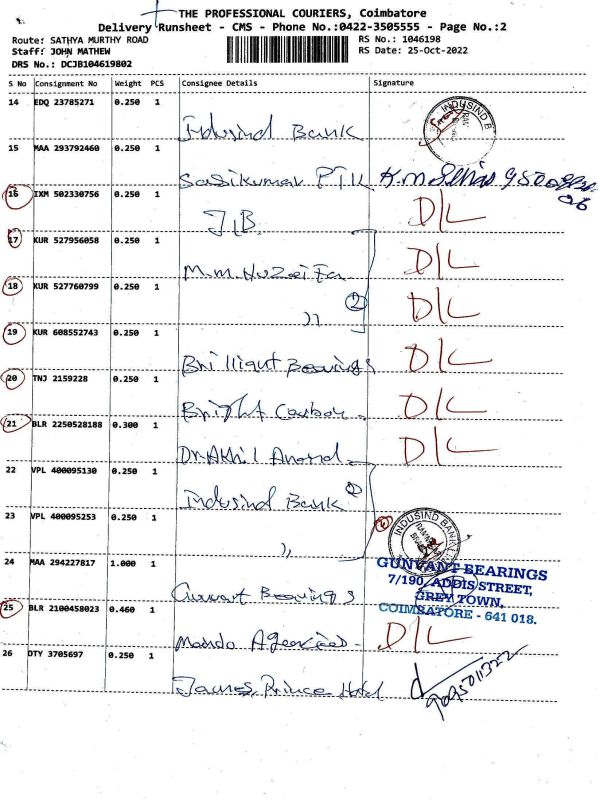 THE PROFESSIONAL COURIERS, Coimbatore
Delivery Runsheet - CMS - Phone No.:0422-3505555 - Page No.:2
Route: SATHYA MURTHY ROAD
RS No.: 1046198
Staff: JOHN MATHEW
RS Date: 25-Oct-2022
DRS No.: DCJB104619802
S No Consignment No Weight PCS Consignee Details Signature
14 EDQ 23785271 0.250 1
Indusind Bank
INDUSIND B
15 MAA 293792460 0.250 1
Sasikumar
16 IXM 502330756 0.250 1
D/L
17 KUR 527956058 0.250 1
M.M. Huzaifa
D/L
18 KUR 527760799 0.250 1
②
))
D/L
19 KUR 608552743 0.250 1
Brilliant Bearings
D/L
20 TNJ 2159228 0.250 1
Bright Carbon
D/L
21 BLR 2250528188 0.300 1
Dr. Akhil Anand
D/L
22 VPL 400095130 0.250 1
Indusind Bank ②
23 VPL 400095253 0.250 1
)) ②
INDUSIND BANK
24 MAA 294227817 1.000 1
Gunvant Bearings
GUNVANT BEARINGS
7/190, ADDIS STREET,
GREY TOWN,
COIMBATORE - 641 018.
25 BLR 2100458023 0.460 1
Agencies
D/L
26 DTY 3705697 0.250 1
James Prince Hotel
9095011322